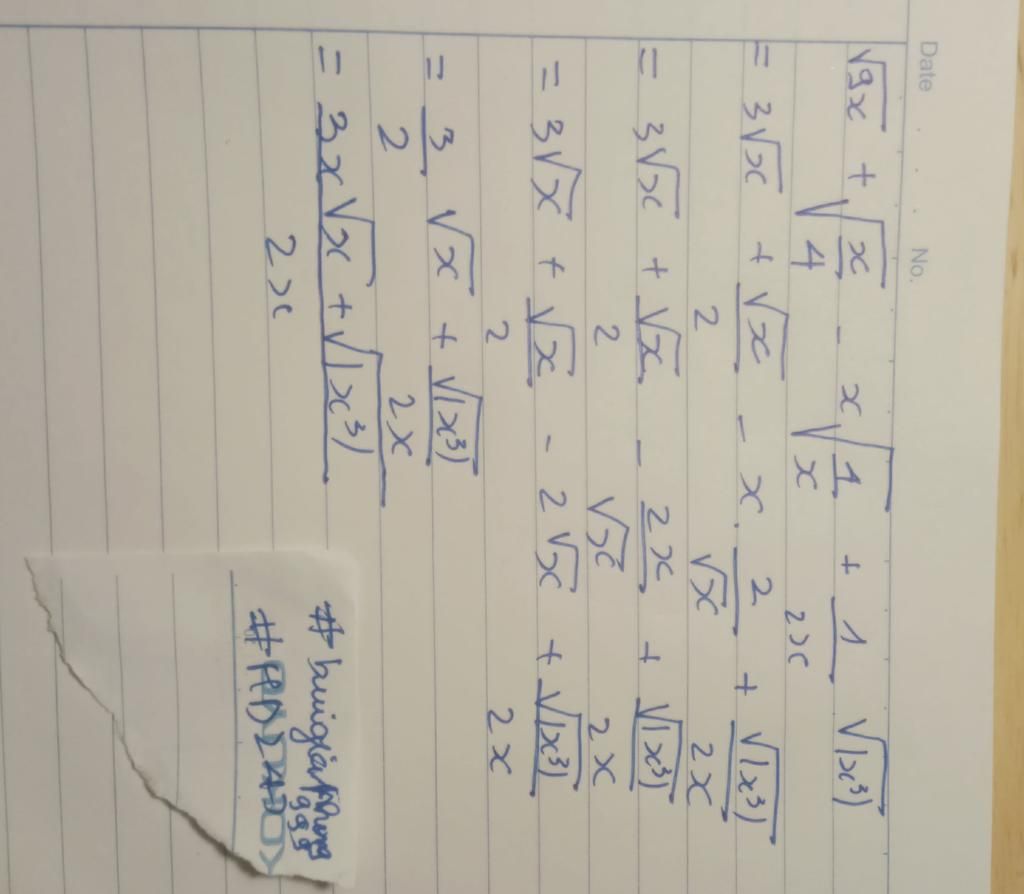 Date No.
√9x + √(x/4) - x√(1/x) + 1/2x √(x³)
= 3√x + √x/2 - x . 2/√x + √(x³)/2x
= 3√x + √x/2 - 2x/√x + √(x³)/2x
= 3√x + √x/2 - 2√x + √(x³)/2x
= 3/2 √x + √(x³)/2x
= 3x√x + √(x³)/2x